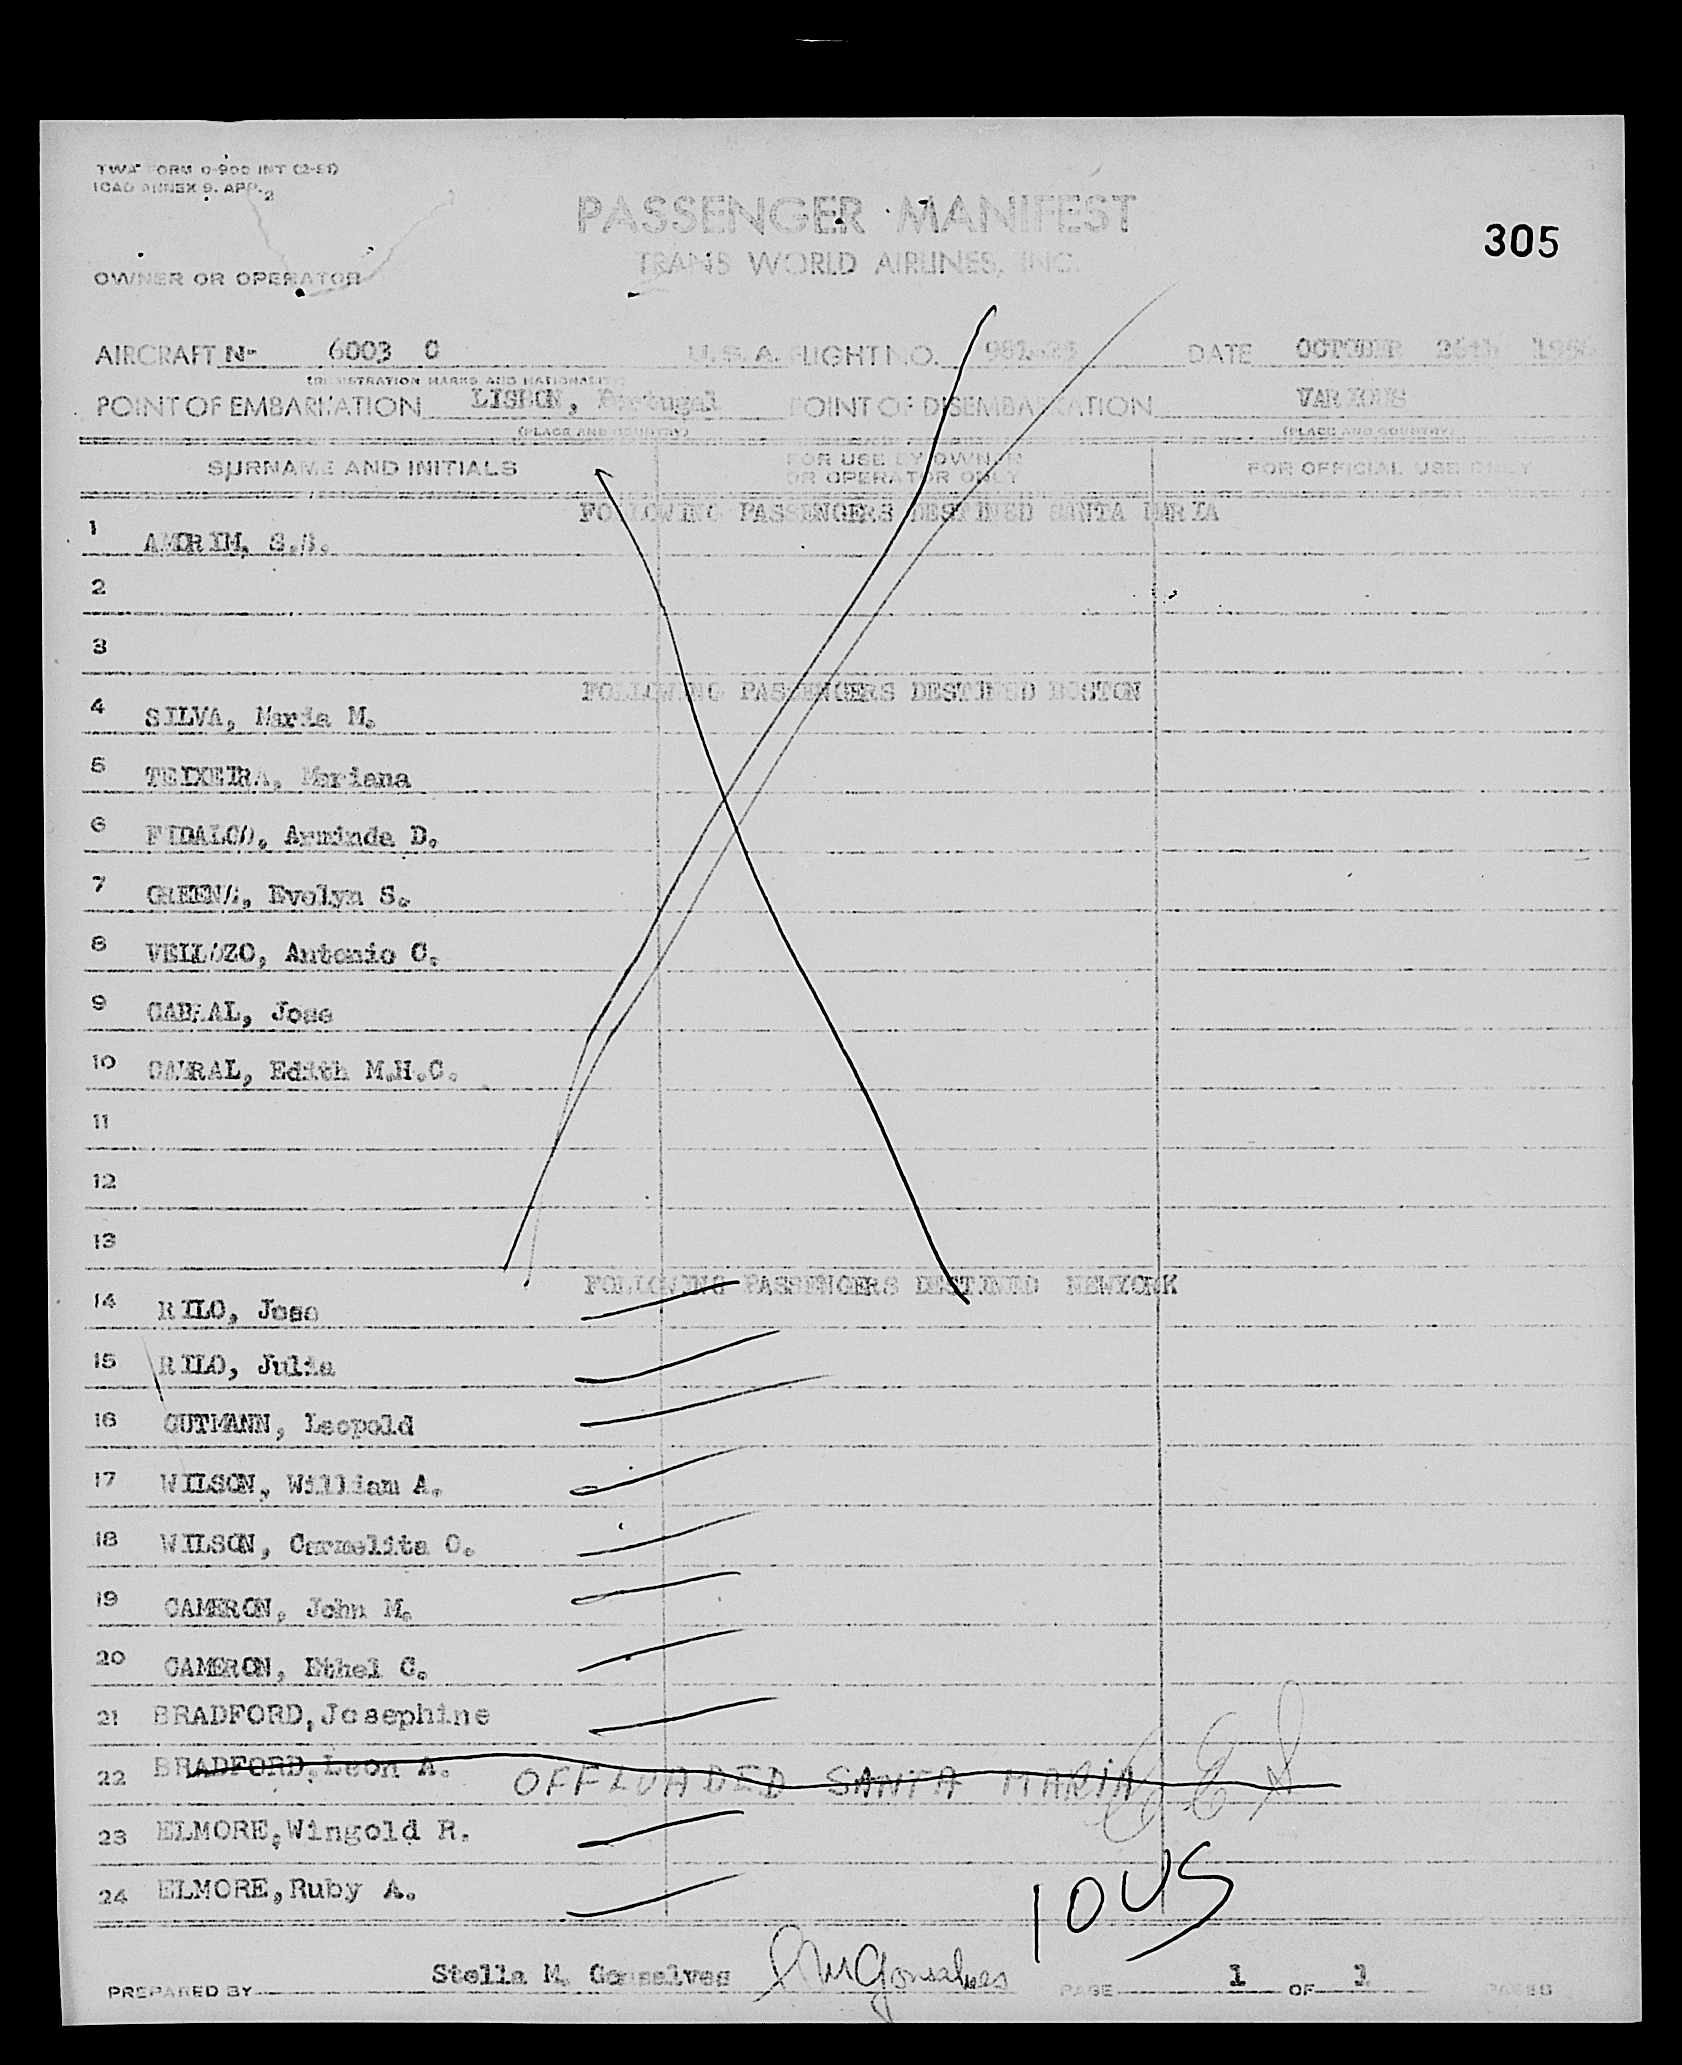 TWA FORM 0-900 INT (2-51)
ICAO ANNEX 9. APP. 2
PASSENGER MANIFEST
305
TRANS WORLD AIRLINES, INC.
OWNER OR OPERATOR
AIRCRAFT No 6003 C U. S. A. FLIGHT NO. DATE OCTOBER
(REGISTRATION MARKS AND NATIONALITY)
POINT OF EMBARKATION LISBON, Portugal POINT OF DISEMBARKATION VARIOUS
(PLACE AND COUNTRY) (PLACE AND COUNTRY)
SURNAME AND INITIALS FOR USE BY OWNER OR OPERATOR ONLY FOR OFFICIAL USE ONLY
FOLLOWING PASSENGERS DESTINED SANTA MARIA
1 AMORIM,
2
3
FOLLOWING PASSENGERS DESTINED BOSTON
4 SILVA, Maria M.
5 TEIXEIRA, Mariana
6 FIDALGO, Arminda D.
7 Evelyn S.
8 VELLOZO, Antonio C.
9 CABRAL, Jose
10 CABRAL, Edith M.H.C.
11
12
13
FOLLOWING PASSENGERS DESTINED NEWYORK
14 RILO, Jose
15 RILO, Julia
16 GUTMANN, Leopold
17 WILSON, William A.
18 WILSON, Carmelita C.
19 CAMERON, John M.
20 CAMERON, Ethel C.
21 BRADFORD, Josephine
22 BRADFORD, Leon A. OFFLOADED SANTA MARIA
23 ELMORE, Wingold R.
24 ELMORE, Ruby A.
10 US
PREPARED BY Stella M. Gonsalves SMGonsalves PAGE 1 OF 1 PAGES